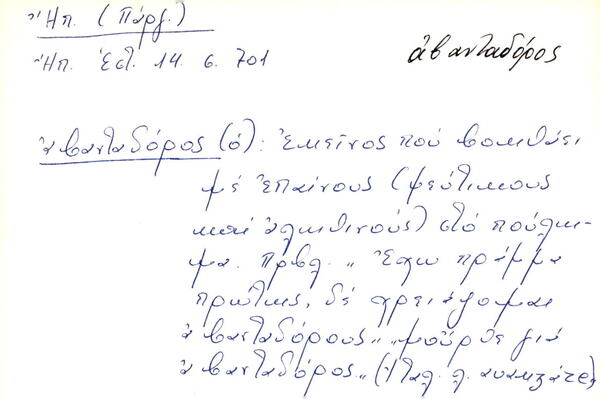 Ἤπ. (Πάργ.)
Ἤπ. Ἑστ. 14. σ. 701
ἀβανταδόρος
ἀβανταδόρος (ὁ): Ἐκεῖνος πού βοηθάει
μέ ἐπαίνους (ψεύτικους
καί ἀληθινούς) στό πούλη-
μα. Πρβλ. „ Ἔχω πρᾶμμα
πρώτης, δέ χρειάζομαι
ἀβανταδόρους„ „μοὖρθε γιά
ἀβανταδόρος„ (Ἰταλ. λ.